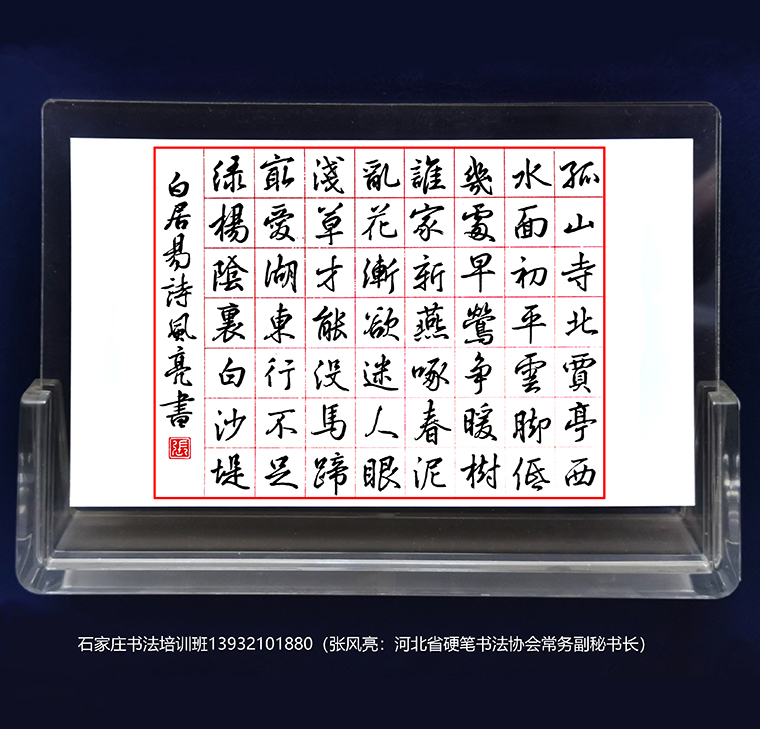 孤山寺北賈亭西
水面初平雲脚低
幾處早鶯争暖樹
誰家新燕啄春泥
亂花漸欲迷人眼
淺草才能没馬蹄
㝡愛湖東行不足
绿楊陰裏白沙堤
白居易詩風亮書
張
石家庄书法培训班13932101880（张风亮：河北省硬笔书法协会常务副秘书长）